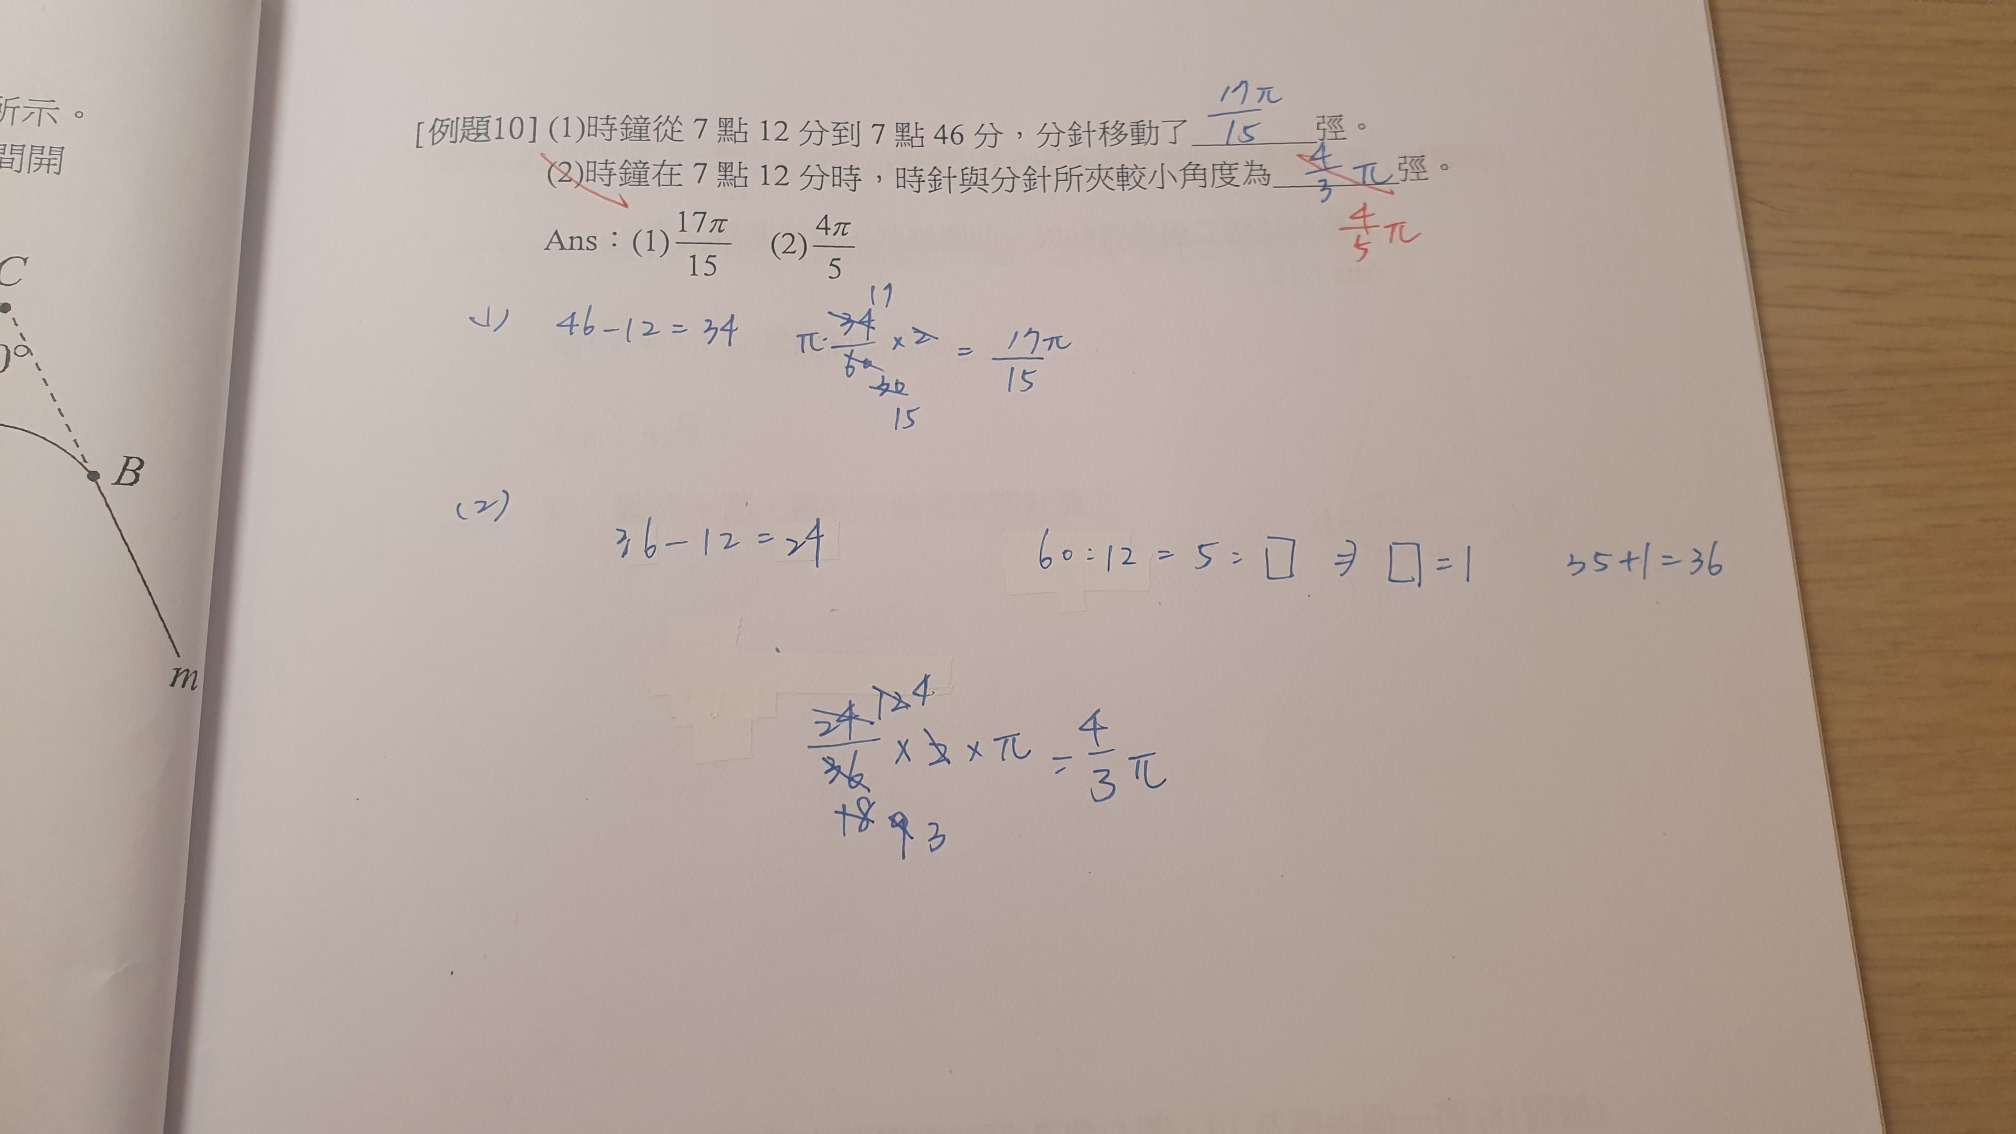 所示。
間開
C
0°
B
m
[例題10] (1)時鐘從 7 點 12 分到 7 點 46 分，分針移動了 17π/15 弳。
(2)時鐘在 7 點 12 分時，時針與分針所夾較小角度為 4/3 π 弳。
4/5 π
Ans：(1) 17π/15 (2) 4π/5
(1) 46-12=34 π·34/60×2 = 17π/15
17
30
15
(2) 36-12=24 60:12=5:□ ⇒ □=1 35+1=36
24/36 × 2 × π = 4/3 π
12 4
18 9 3